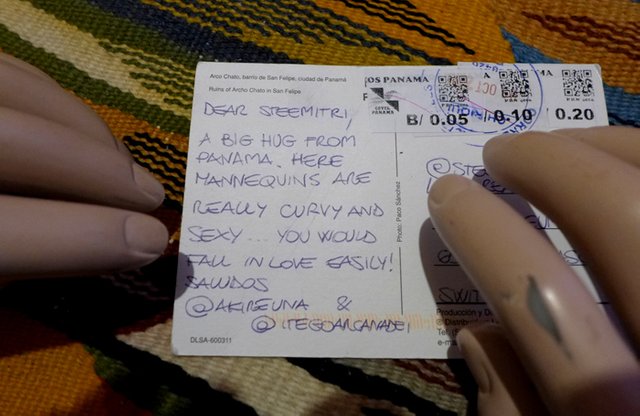 Arco Chato, barrio de San Felipe, ciudad de Panamá
Ruins of Archo Chato in San Felipe
DEAR STEEMITRI,
A BIG HUG FROM
PANAMA. HERE
MANNEQUINS ARE
REALLY CURVY AND
SEXY... YOU WOULD
FALL IN LOVE EASILY!
SALUDOS
@AKIREUNA &
DLSA-600311
Photo: Paco Sánchez
OS PANAMA
COTEL
PANAMA
B/ 0.05
0.10
0.20
OCT
SWIT
Producción y D
© Distribu
Tel.
e-ma